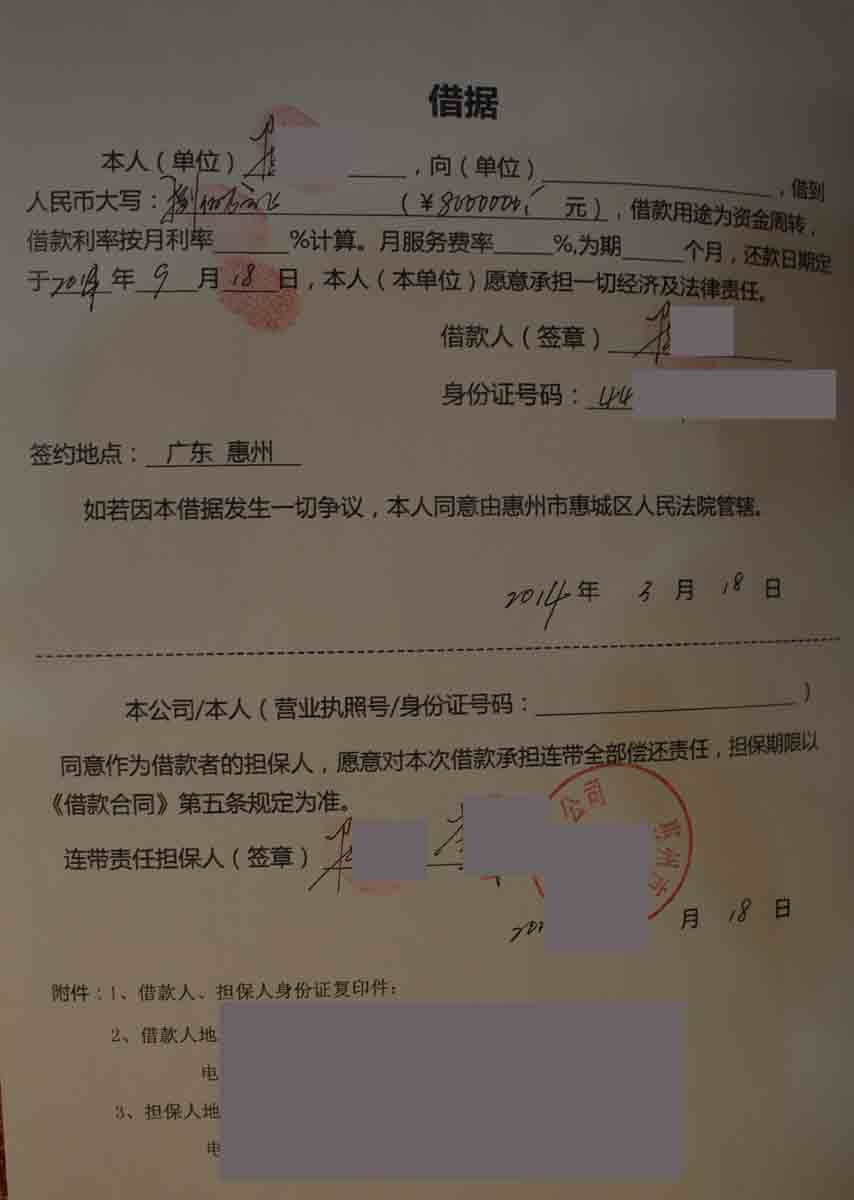 借据
本人（单位）________，向（单位）________，借到
人民币大写：捌佰万元正（￥8000000.- 元），借款用途为资金周转，
借款利率按月利率______%计算。月服务费率_____%,为期_____个月，还款日期定
于2014年9月18日，本人（本单位）愿意承担一切经济及法律责任。
借款人（签章）________
身份证号码：44
签约地点：广东 惠州
如若因本借据发生一切争议，本人同意由惠州市惠城区人民法院管辖。
2014年 3月 18日
本公司/本人（营业执照号/身份证号码：________）
同意作为借款者的担保人，愿意对本次借款承担连带全部偿还责任，担保期限以
《借款合同》第五条规定为准。
连带责任担保人（签章）
公司
惠州市
201 月 18 日
附件：1、借款人、担保人身份证复印件：
2、借款人地
电
3、担保人地
电